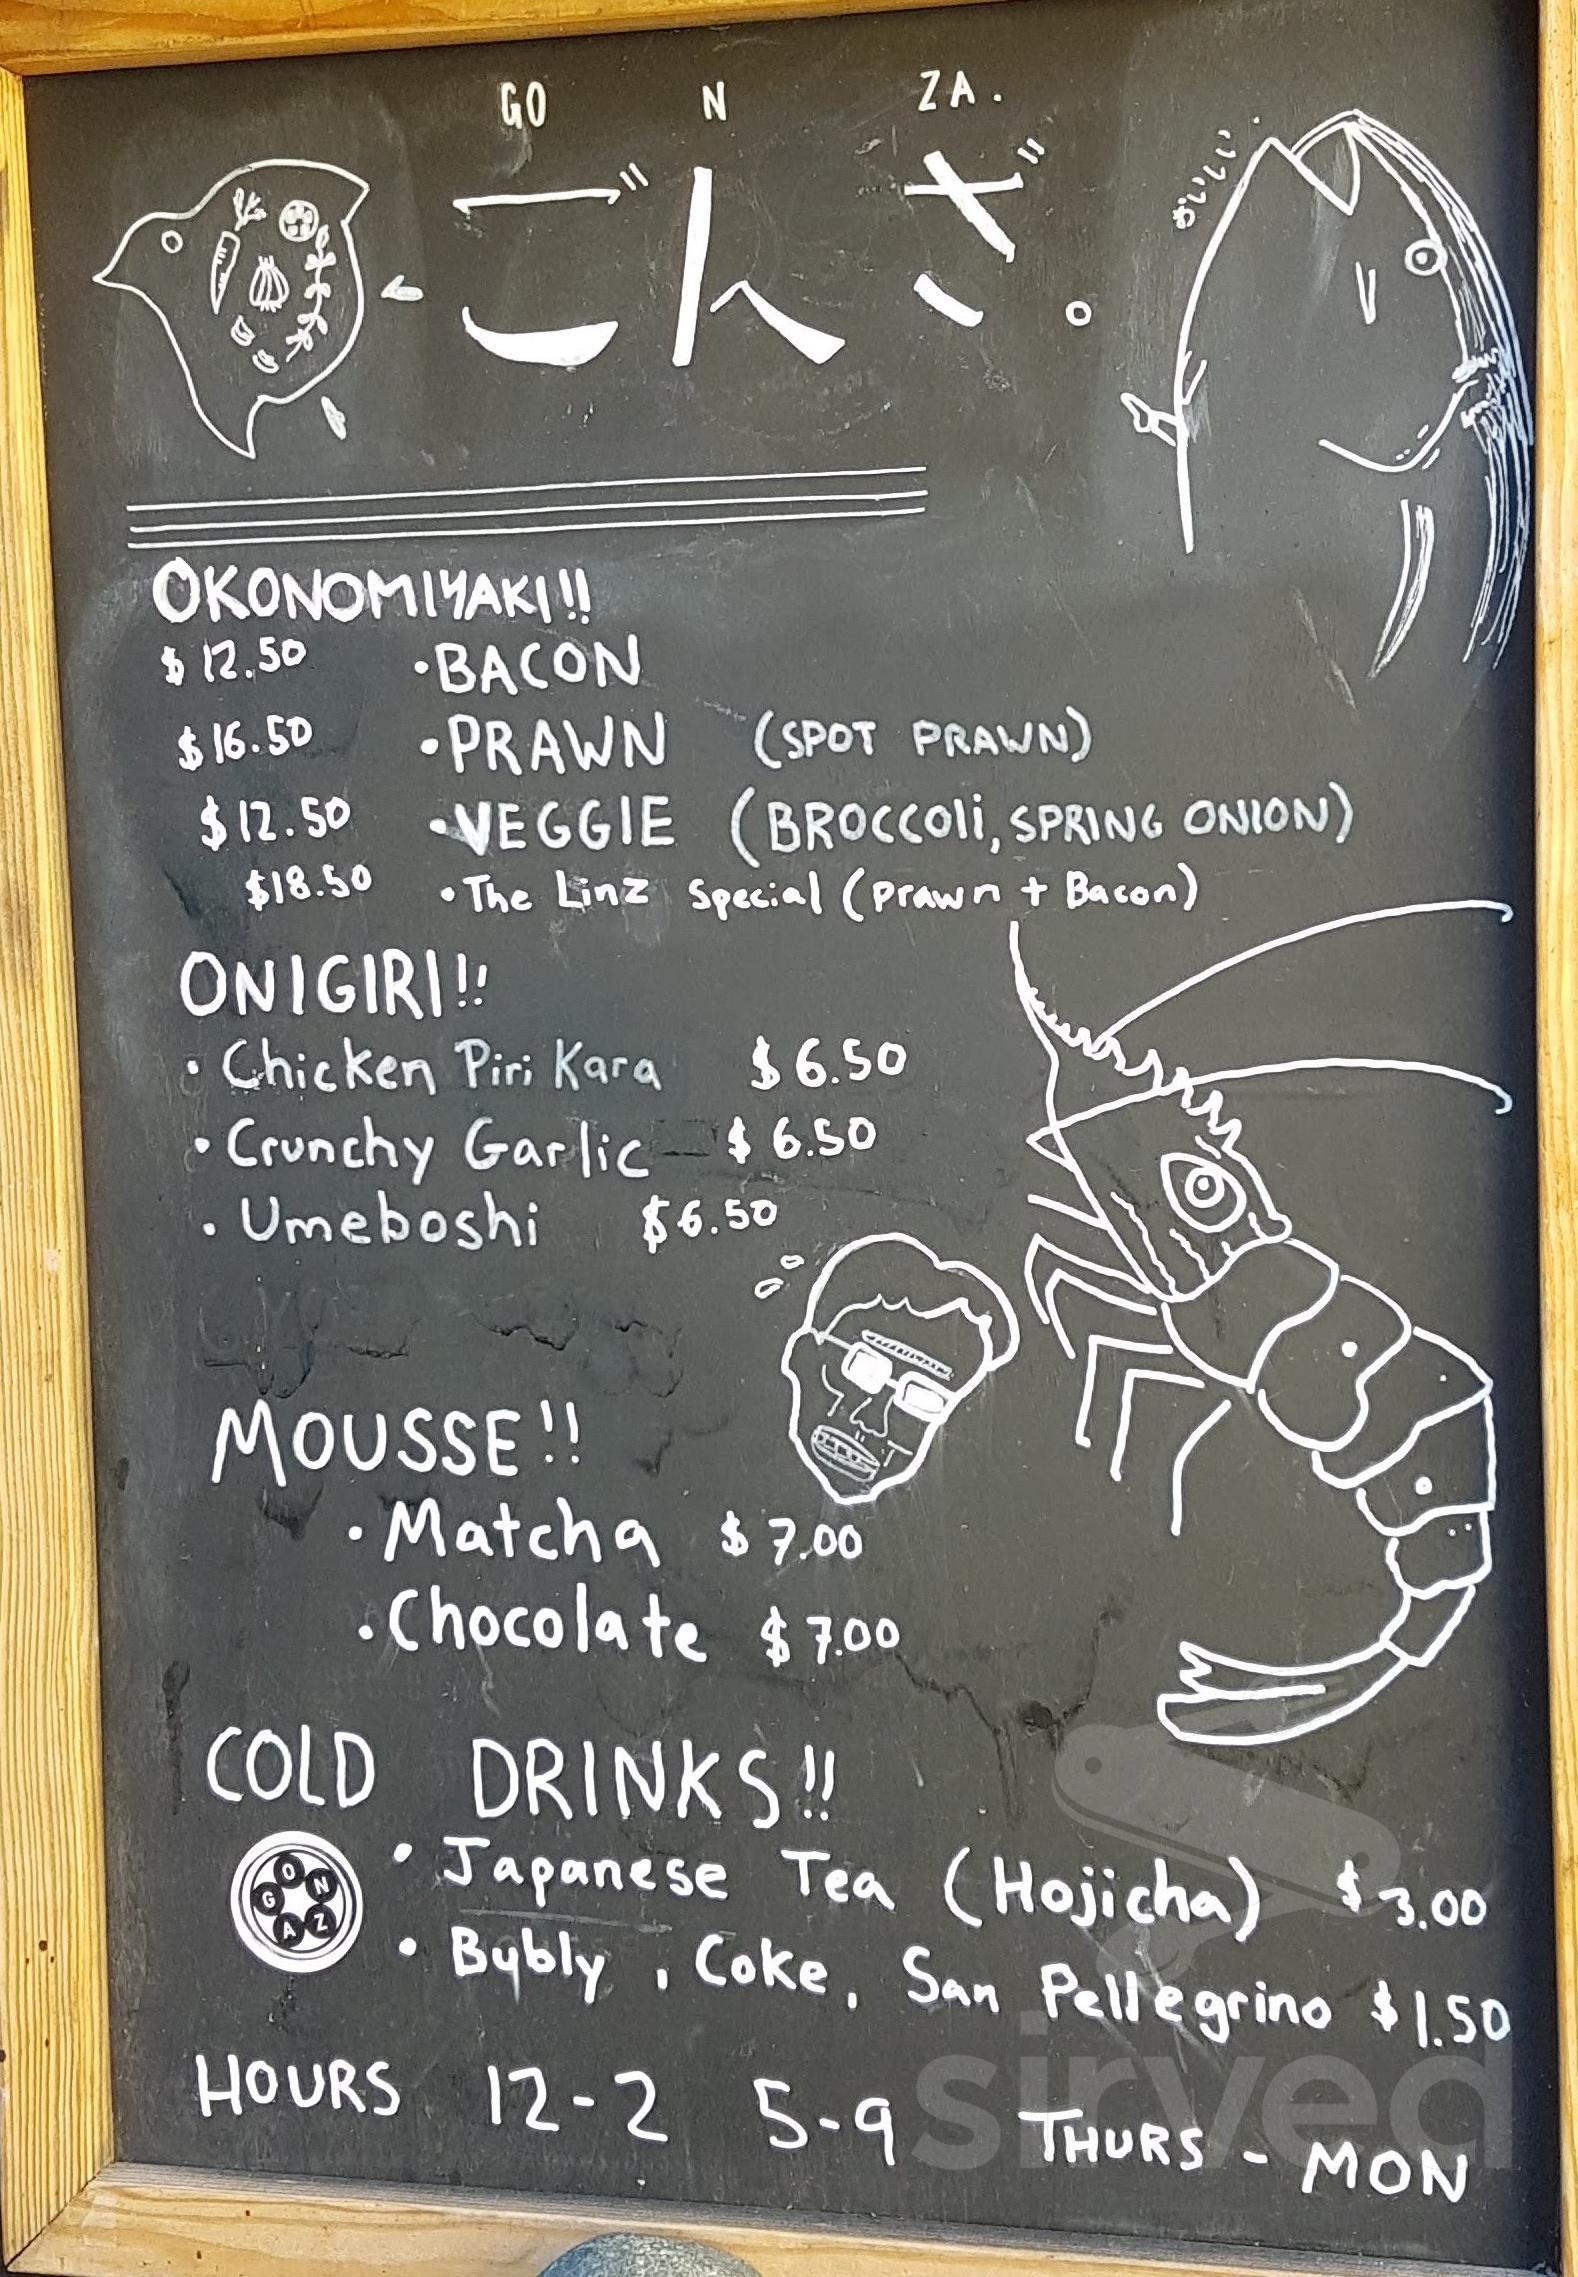 GO N ZA.
ごんざ。
おいしい.
OKONOMIYAKI!!
$12.50 •BACON
$16.50 •PRAWN (SPOT PRAWN)
$12.50 •VEGGIE (BROCCOli, SPRING ONION)
$18.50 •The Linz Special (Prawn + Bacon)
ONIGIRI!!
• Chicken Piri Kara $6.50
• Crunchy Garlic $6.50
• Umeboshi $6.50
MOUSSE!!
• Matcha $7.00
• Chocolate $7.00
COLD DRINKS!!
GONZA
• Japanese Tea (Hojicha) $3.00
• Bubly, Coke, San Pellegrino $1.50
HOURS 12-2 5-9 THURS - MON
sirved